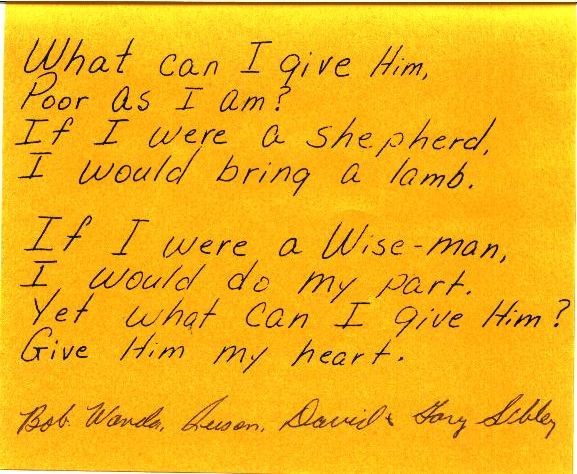 What can I give Him,
Poor as I am?
If I were a shepherd,
I would bring a lamb.
If I were a Wise-man,
I would do my part.
Yet what can I give Him?
Give Him my heart.
Bob. Wanda, Susan, David & Gary Sibley